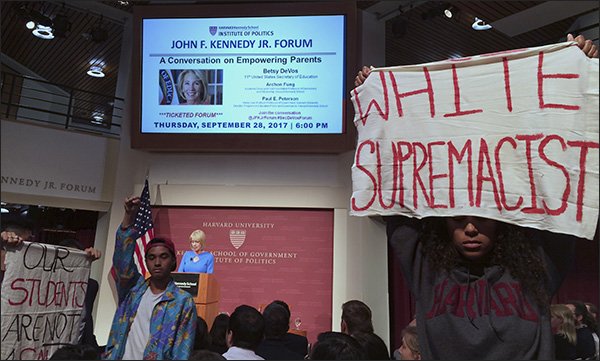 HARVARD Kennedy School
INSTITUTE OF POLITICS
JOHN F. KENNEDY JR. FORUM
A Conversation on Empowering Parents
Betsy DeVos
11th United States Secretary of Education
Archon Fung
Paul E. Peterson
***TICKETED FORUM***
Join the conversation
@JFKJrForum #SecDeVosForum
THURSDAY, SEPTEMBER 28, 2017 | 6:00 PM
WHITE
SUPREMACIST
KENNEDY JR. FORUM
HARVARD UNIVERSITY
SCHOOL OF GOVERNMENT
INSTITUTE OF POLITICS
OUR
STUDENTS
ARE NOT
HARVARD